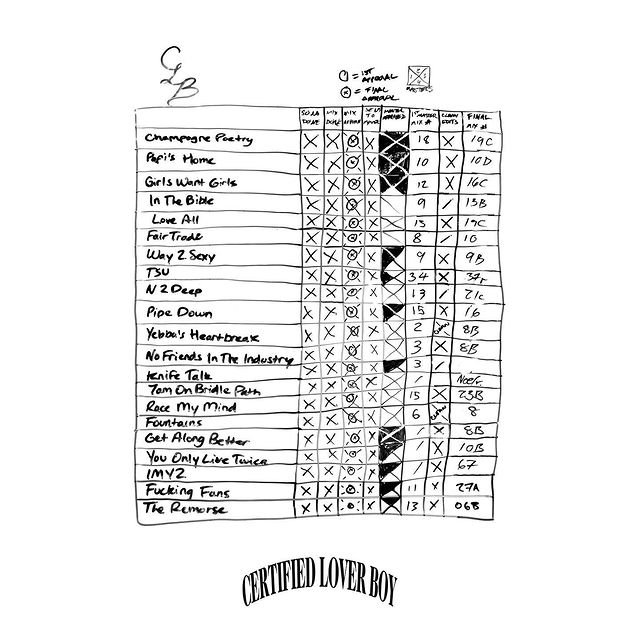 CLB
= 1ST APPROVAL
= FINAL APPROVAL
MASTERS
MIX DONE FINAL MIX #
Champagne Poetry X X X 18 X 19C
Papi's Home X X X 10 X 10D
Girls Want Girls X X X 12 X 16C
In The Bible X X X 9 / 13B
Love All X X X 15 X 19C
Fair Trade X X X 8 / 10
Way 2 Sexy X X X 9 X 9B
TSU X X X 34 X
N 2 Deep X X X 13 / 21C
Pipe Down X X X 15 X 16
Yebba's Heartbreak X X X 2 8B
No Friends In The Industry X X X 3 X 8B
Knife Talk X X X 3 /
7am On Bridle Path X X X /
Race My Mind X X X 15 X 23B
Fountains X X X 6 8
Get Along Better X X X X 8B
You Only Live Twice X X X / X 10B
IMY2 X X X / X 67
Fucking Fans X X X 11 X 27A
The Remorse X X X 13 X 06B
CERTIFIED LOVER BOY